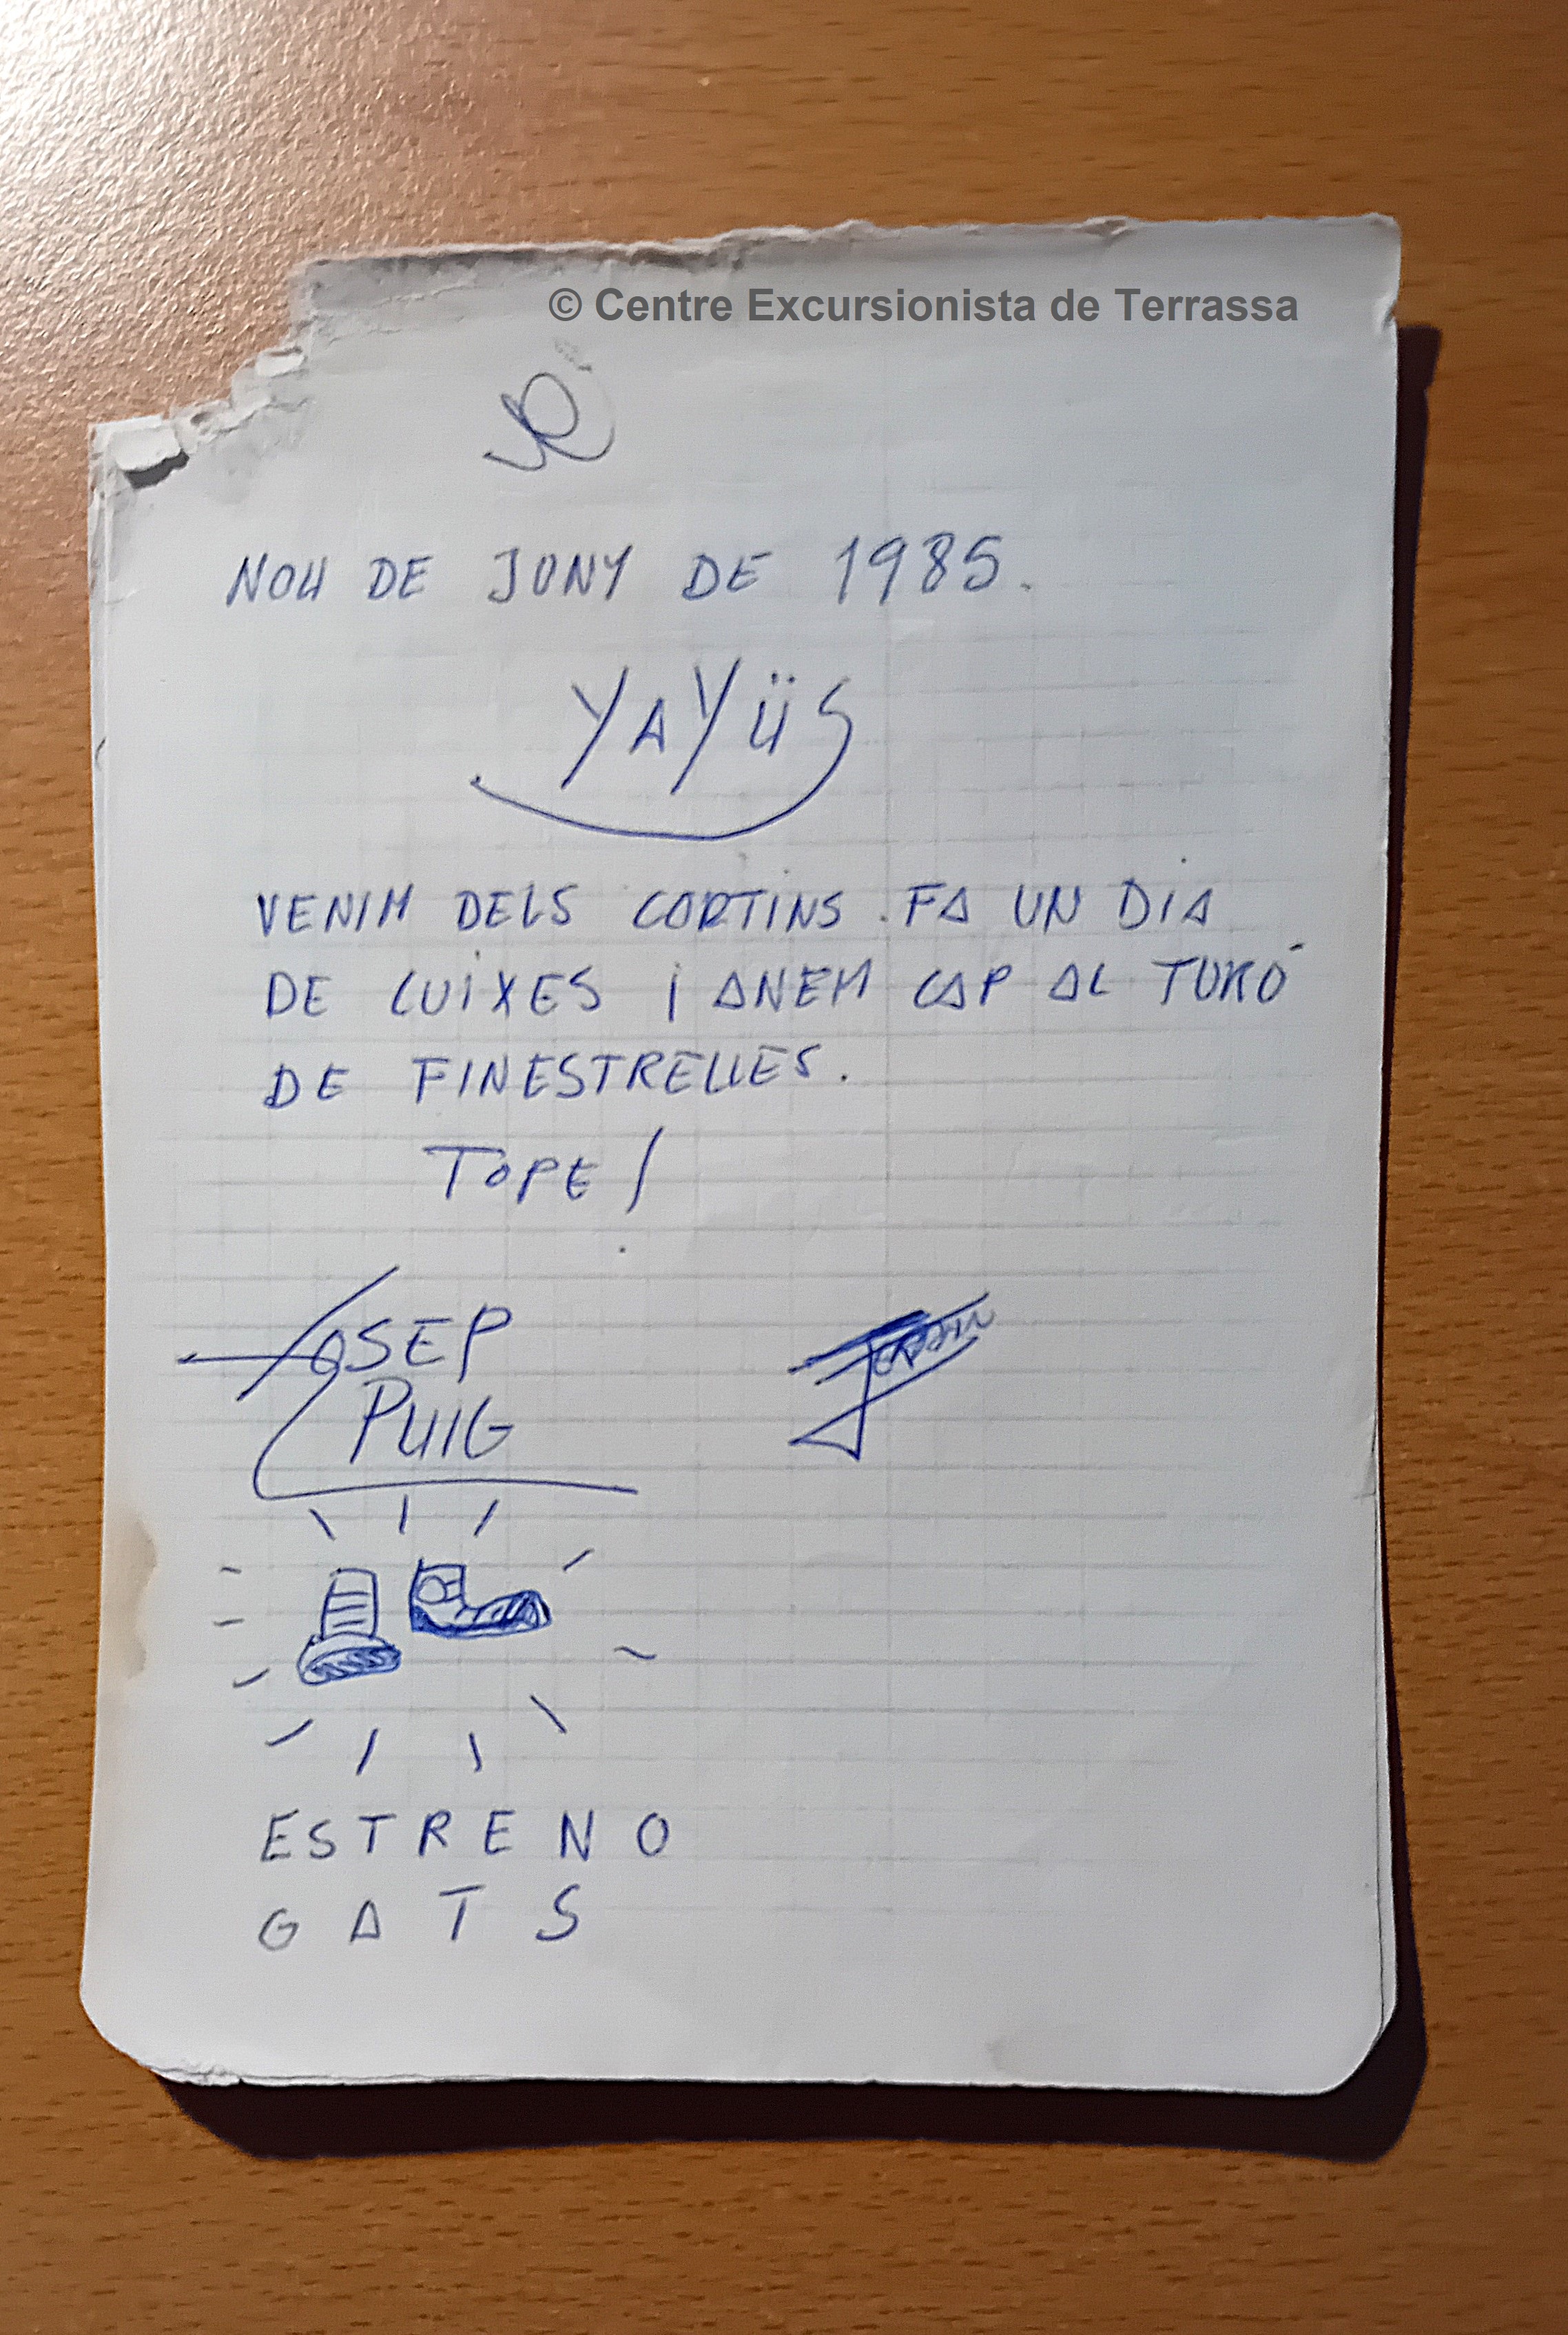 © Centre Excursionista de Terrassa
NOU DE JUNY DE 1985.
YAYÜS
VENIM DELS CORTINS. FA UN DIA
DE CUIXES I ANEM CAP AL TURÓ
DE FINESTRELLES.
TOPE!
JOSEP
PUIG
ESTRENO
GATS